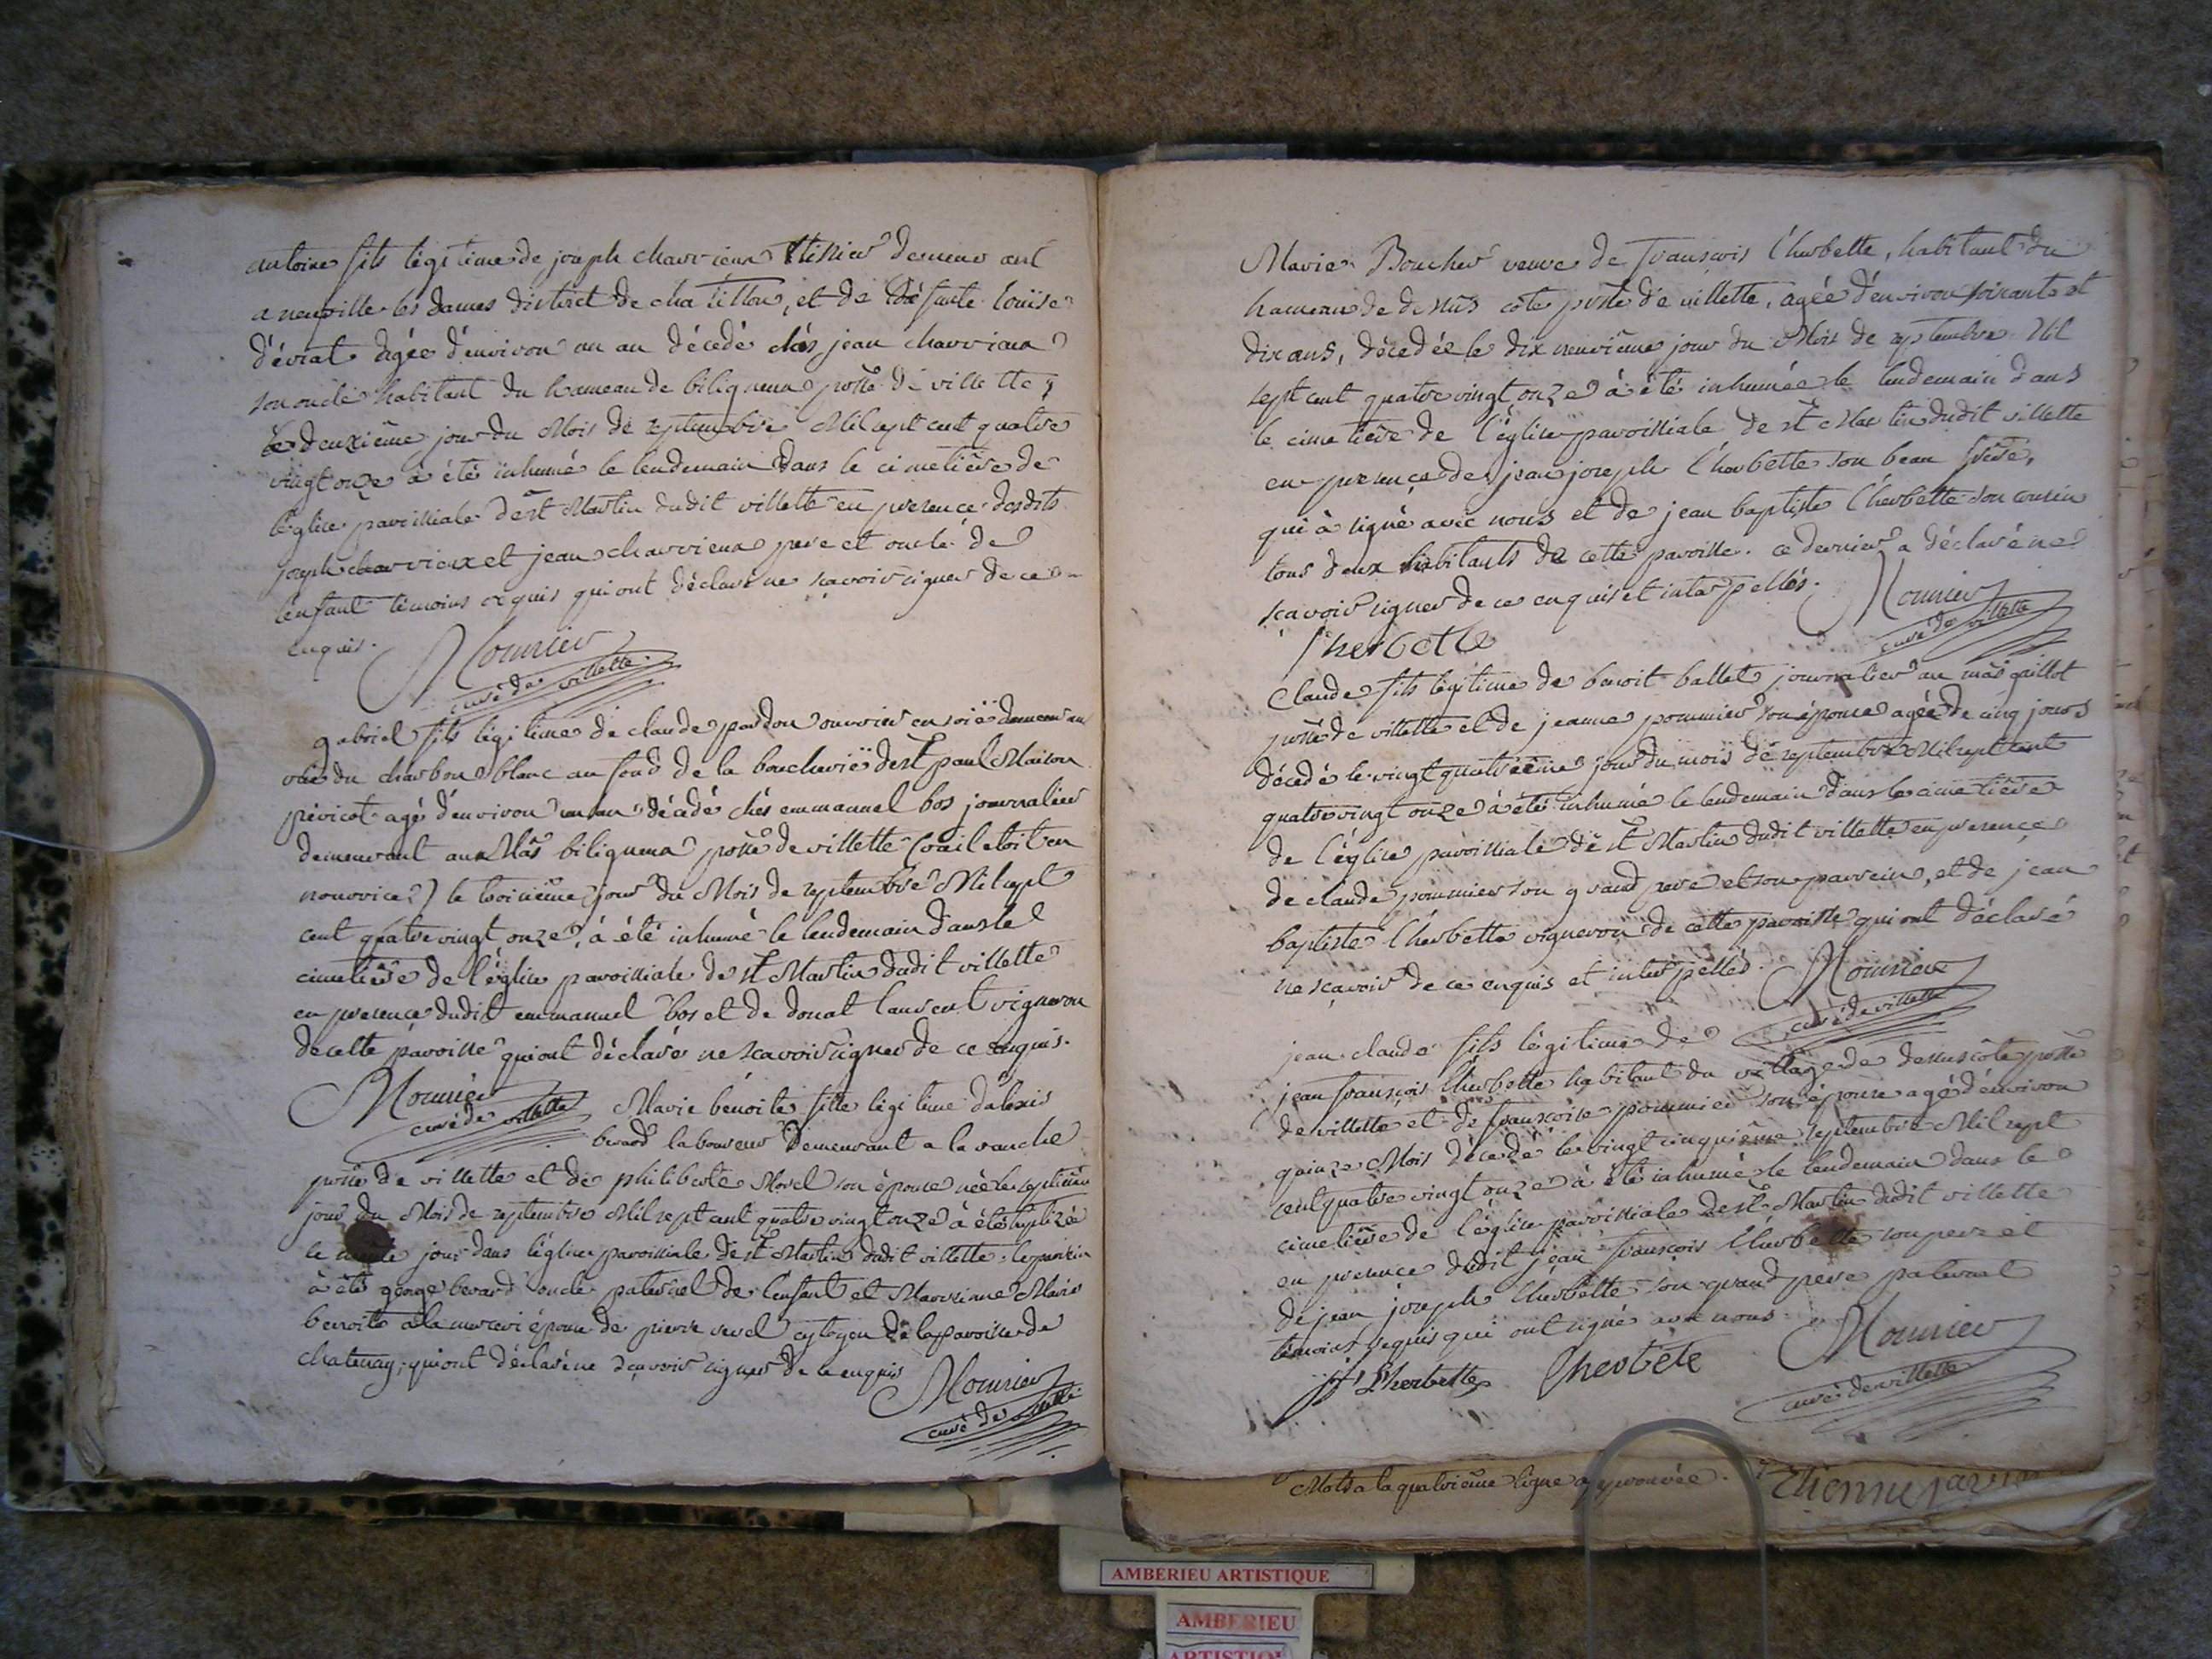 antoine fils légitime de joseph charvieux tissier demeurant
a neuville les dames district de chatillon, et de défunte Louise
d'évrat agée d'environ un an décédé chés jean charvieux
son oncle habitant du hameau de biligneux posse de villette,
le deuxième jour du Mois de septembre Mil sept cent quatre
vingt onze à été inhumé le lendemain dans le cimetière de
l'église paroissiale de st Martin dudit villette en presence desdits
joseph charvieux et jean charvieux pere et oncle de
l'enfant témoins requis qui ont déclaré ne scavoir signer de ce
enquis.
Mounier
curé de villette
gabriel fils légitime de claude pardon ouvrier en soïe demeurant
rüe du charbon blanc au fond de la boucherie de st paul Maison
péricot agé d'environ un an décédé chés emmanuel bos journalier
demeurant au Mas biligneux posse de villette (où il etoit en
nourrice) le troisième jour du Mois de septembre Mil sept
cent quatre vingt onze, à été inhumé le lendemain dans le
cimetière de l'église paroissiale de st Martin dudit villette
en presence dudit emmanuel bos et de donat laurent vigneron
de cette paroisse qui ont déclaré ne scavoir signer de ce enquis.
Mounier
curé de villette
Marie benoite fille légitime d'alexis
berard laboureur demeurant a la ranche
posse de villette et de philiberte Morel son épouse née le septième
jour du Mois de septembre Mil sept cent quatre vingt onze à été baptizée
le jour dans l'église paroissiale de st Martin dudit villette. le parrein
à été george berard oncle paternel de l'enfant et Marreinne Marie
benoite épouse de pierre revel cytoyen de la paroisse de
chatenay, qui ont déclaré ne sçavoir signer de ce enquis
Mounier
curé de villette
Marie Boucher veuve de françois l'herbette, habitant du
hameau de dessus côte posse de villette, agée d'environ soixante et
dix ans, décedée le dix neuvième jour du Mois de septembre Mil
sept cent quatre vingt onze à été inhumée le lendemain dans
le cimetière de l'église paroissiale de st Martin dudit villette
en presence de jean joseph l'herbette son beau frére,
qui à signé avec nous et de jean baptiste l'herbette son cousin
tous deux habitants de cette paroisse. ce dernier a déclaré ne
scavoir signer de ce enquis et interpellés.
Mounier
curé de villette
l'herbette
Claude fils légitime de benoit ballet journalier au mas gaillot
posse de villette et de jeanne pommier son épouse agée de cinq jours
décedé le vingt quatrième jour du mois de septembre Mil sept cent
quatre vingt onze à été inhumé le lendemain dans le cimetière
de l'église paroissiale de st Martin dudit villette en presence
de claude pommier son grand pere et son parrein, et de jean
baptiste l'herbette vigneron de cette paroisse qui ont déclaré
ne sçavoir de ce enquis et interpellés.
Mounier
curé de villette
jean claude fils légitime de
jean françois l'herbette habitant du village de dessus côte posse
de villette et de françoise pommier son épouse agé d'environ
quinze Mois décedé le vingt cinquième septembre Mil sept
cent quatre vingt onze à été inhumé le lendemain dans le
cimetière de l'église paroissiale de st Martin dudit villette
en presence dudit jean françois l'herbette son pere et
de jean joseph l'herbette son grand pere paternel
témoins requis qui ont signé avec nous.
Mounier
curé de villette
jf L'herbette
lherbete
Mots a la quatrième ligne approuvée.
Etienne
AMBERIEU ARTISTIQUE
AMBERIEU
ARTISTIQUE